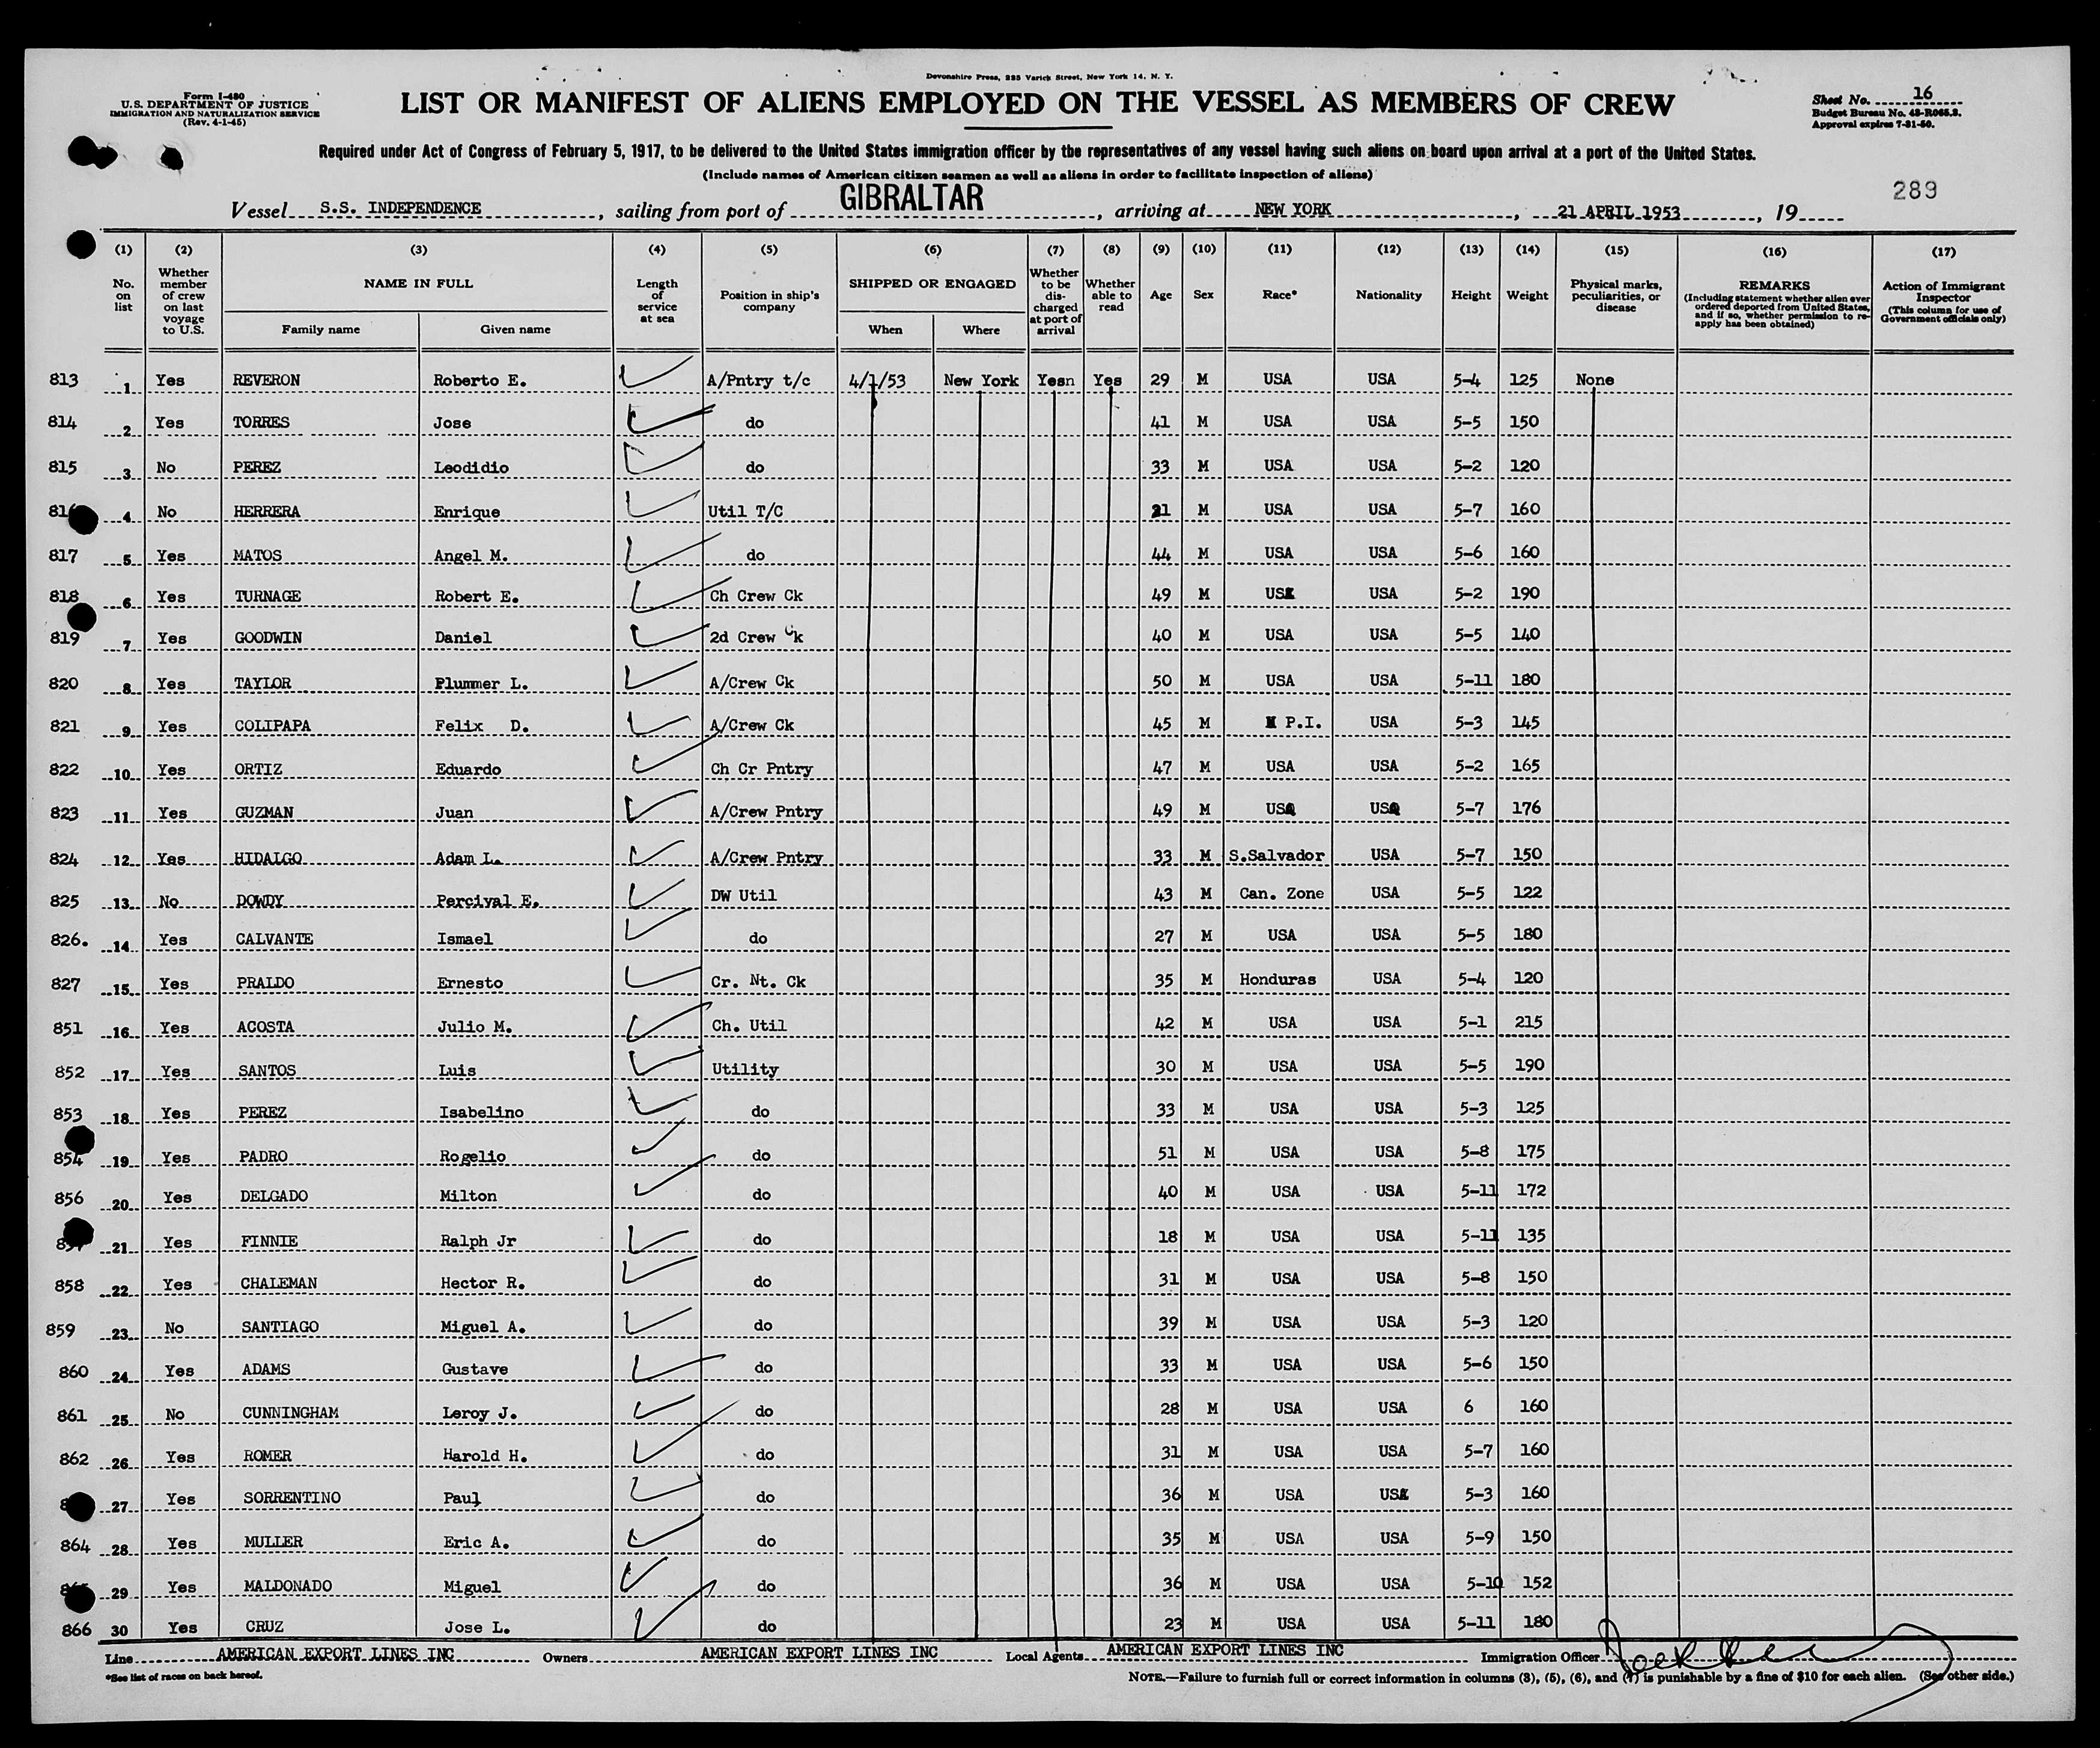 Devonshire Press, 225 Varick Street, New York 14, N. Y.
Form I-480
U.S. DEPARTMENT OF JUSTICE
IMMIGRATION AND NATURALIZATION SERVICE
(Rev. 4-1-45)
LIST OR MANIFEST OF ALIENS EMPLOYED ON THE VESSEL AS MEMBERS OF CREW
Sheet No. 16
Budget Bureau No. 43-R065.3.
Approval expires 7-31-50.
Required under Act of Congress of February 5, 1917, to be delivered to the United States immigration officer by the representatives of any vessel having such aliens on board upon arrival at a port of the United States.
(Include names of American citizen seamen as well as aliens in order to facilitate inspection of aliens)
289
Vessel S.S. INDEPENDENCE, sailing from port of GIBRALTAR, arriving at NEW YORK, 21 APRIL 1953, 19
(1) (2) (3) (4) (5) (6) (7) (8) (9) (10) (11) (12) (13) (14) (15) (16) (17)
No. on list
Whether member of crew on last voyage to U.S.
NAME IN FULL
Family name Given name
Length of service at sea
Position in ship's company
SHIPPED OR ENGAGED
When Where
Whether to be discharged at port of arrival
Whether able to read
Age
Sex
Race*
Nationality
Height
Weight
Physical marks, peculiarities, or disease
REMARKS
(Including statement whether alien ever ordered deported from United States, and if so, whether permission to re-apply has been obtained)
Action of Immigrant Inspector
(This column for use of Government officials only)
813 1 Yes REVERON Roberto E. A/Pntry t/c 4/1/53 New York Yesn Yes 29 M USA USA 5-4 125 None
814 2 Yes TORRES Jose do 41 M USA USA 5-5 150
815 3 No PEREZ Leodidio do 33 M USA USA 5-2 120
816 4 No HERRERA Enrique Util T/C 21 M USA USA 5-7 160
817 5 Yes MATOS Angel M. do 44 M USA USA 5-6 160
818 6 Yes TURNAGE Robert E. Ch Crew Ck 49 M USA USA 5-2 190
819 7 Yes GOODWIN Daniel 2d Crew Ck 40 M USA USA 5-5 140
820 8 Yes TAYLOR Plummer L. A/Crew Ck 50 M USA USA 5-11 180
821 9 Yes COLIPAPA Felix D. A/Crew Ck 45 M P.I. USA 5-3 145
822 10 Yes ORTIZ Eduardo Ch Cr Pntry 47 M USA USA 5-2 165
823 11 Yes GUZMAN Juan A/Crew Pntry 49 M USA USA 5-7 176
824 12 Yes HIDALGO Adam L. A/Crew Pntry 33 M S.Salvador USA 5-7 150
825 13 No DOWDY Percival E. DW Util 43 M Can. Zone USA 5-5 122
826. 14 Yes CALVANTE Ismael do 27 M USA USA 5-5 180
827 15 Yes PRALDO Ernesto Cr. Nt. Ck 35 M Honduras USA 5-4 120
851 16 Yes ACOSTA Julio M. Ch. Util 42 M USA USA 5-1 215
852 17 Yes SANTOS Luis Utility 30 M USA USA 5-5 190
853 18 Yes PEREZ Isabelino do 33 M USA USA 5-3 125
854 19 Yes PADRO Rogelio do 51 M USA USA 5-8 175
856 20 Yes DELGADO Milton do 40 M USA USA 5-11 172
21 Yes FINNIE Ralph Jr do 18 M USA USA 5-11 135
858 22 Yes CHALEMAN Hector R. do 31 M USA USA 5-8 150
859 23 No SANTIAGO Miguel A. do 39 M USA USA 5-3 120
860 24 Yes ADAMS Gustave do 33 M USA USA 5-6 150
861 25 No CUNNINGHAM Leroy J. do 28 M USA USA 6 160
862 26 Yes ROMER Harold H. do 31 M USA USA 5-7 160
27 Yes SORRENTINO Paul do 36 M USA USA 5-3 160
864 28 Yes MULLER Eric A. do 35 M USA USA 5-9 150
29 Yes MALDONADO Miguel do 36 M USA USA 5-10 152
866 30 Yes CRUZ Jose L. do 23 M USA USA 5-11 180
Line AMERICAN EXPORT LINES INC Owners AMERICAN EXPORT LINES INC Local Agents AMERICAN EXPORT LINES INC Immigration Officer
*See list of races on back hereof.
NOTE.—Failure to furnish full or correct information in columns (3), (5), (6), and (7) is punishable by a fine of $10 for each alien. (See other side.)